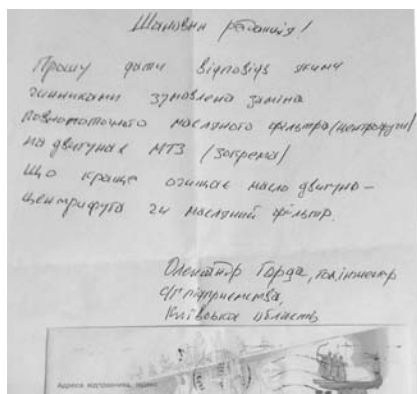 Шановна редакція!
Прошу дати відповідь якими
чинниками зумовлена заміна
повнопоточного масляного фільтра (центрифуги)
на двигунах МТЗ (зокрема)
Що краще очищає масло двигуна –
центрифуга чи масляний фільтр.
Олександр Горда, гол. інженер
с/г підприємства,
Київська область
Адреса відправника, індекс